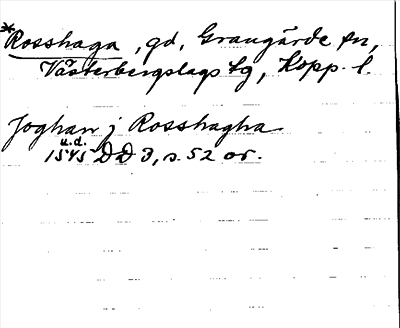 *Rosshaga, gd, Grangärde sn,
Västerbergslags tg, Kopp. l.
Joghan j Rosshagha
u.d.
1545 DD 3, s. 52 or.